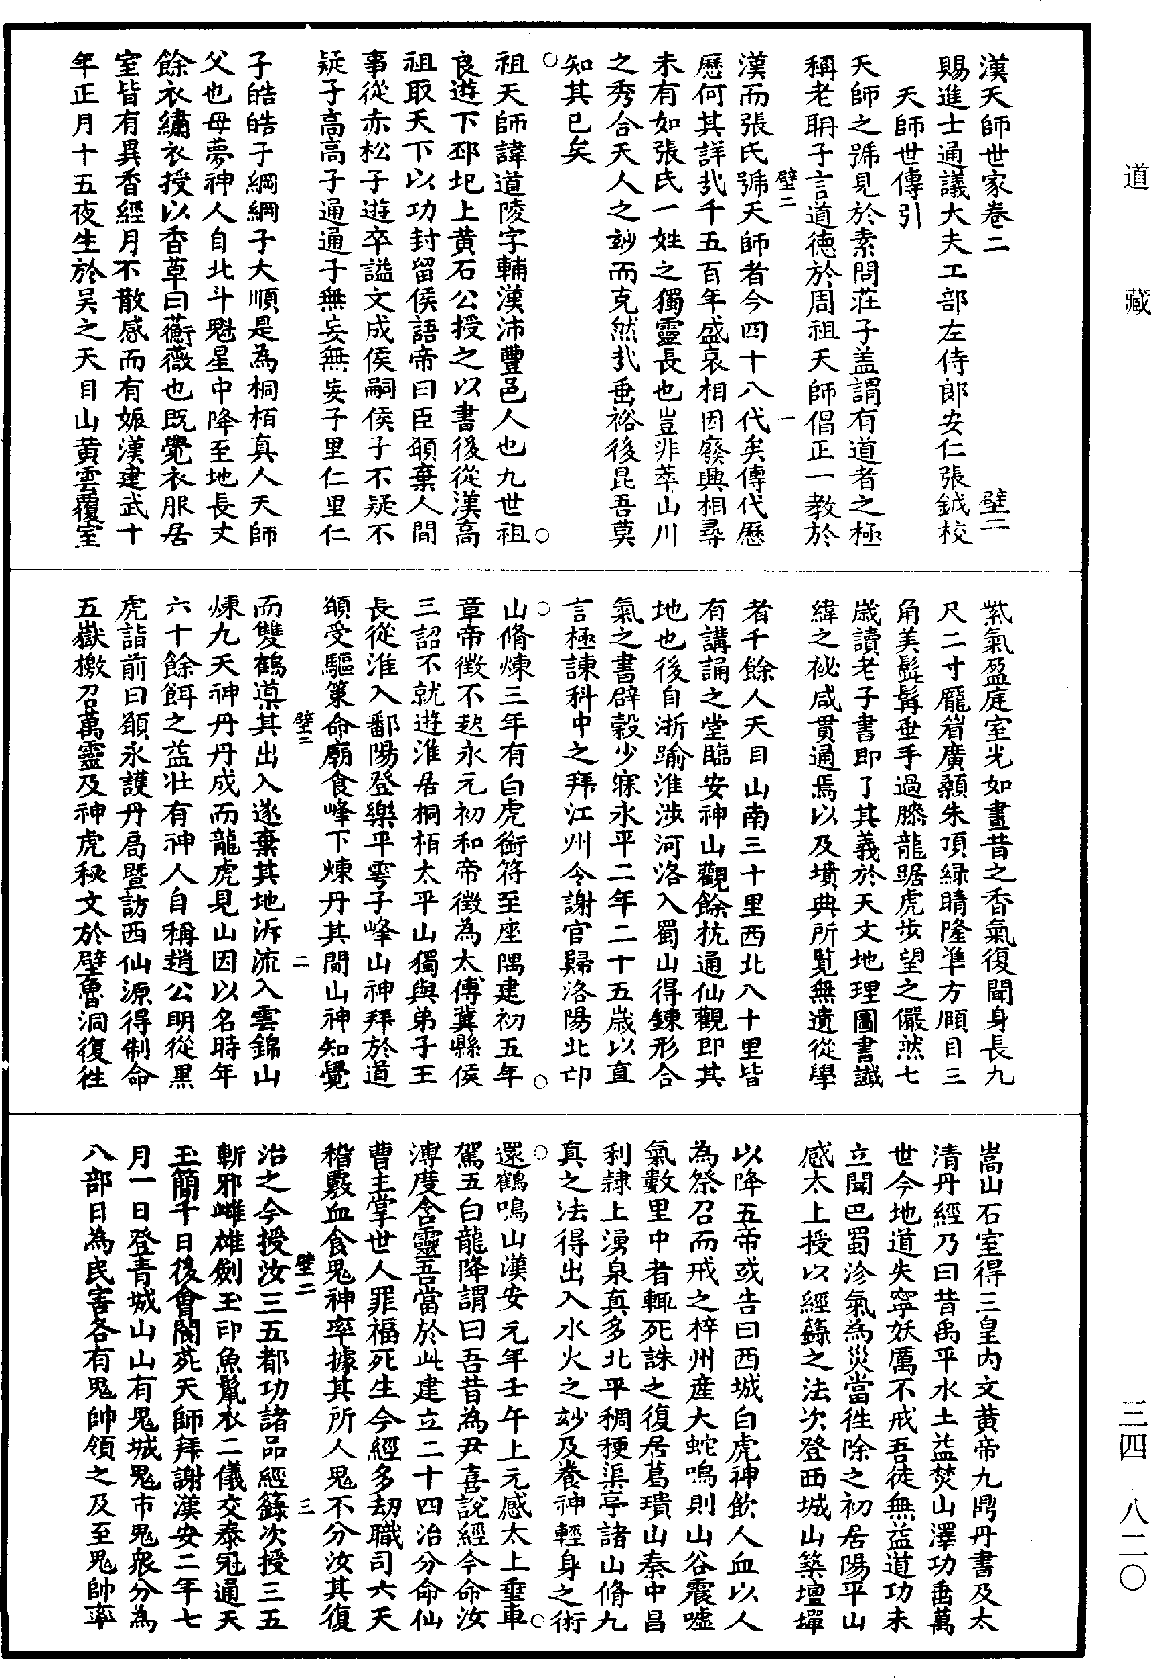 道藏
漢天師世家卷二 壁二
賜進士通議大夫工部左侍郎安仁張鉞校
天師世傳引
天師之號見於素問莊子盖謂有道者之極
稱老聃子言道德於周祖天師倡正一教於
壁二 一
漢而張氏號天師者今四十八代矣傳代歷
歷何其詳哉千五百年盛衰相因廢興相尋
未有如張氏一姓之獨靈長也豈非萃山川
之秀合天人之妙而克然哉垂裕後昆吾莫
知其已矣
祖天師諱道陵字輔漢沛豐邑人也九世祖
良遊下邳圯上黃石公授之以書後從漢高
祖取天下以功封留侯語帝曰臣願棄人間
事從赤松子遊卒謚文成侯嗣侯子不疑不
疑子高高子通通子無妄無妄子里仁里仁
子皓皓子綱綱子大順是為桐栢真人天師
父也母夢神人自北斗魁星中降至地長丈
餘衣繡衣授以香草曰蘅薇也既覺衣服居
室皆有異香經月不散感而有娠漢建武十
年正月十五夜生於吳之天目山黃雲覆室
紫氣盈庭室光如晝昔之香氣復聞身長九
尺二寸龎眉廣顙朱頂綠睛隆準方頤目三
角美髭髯垂手過膝龍踞虎步望之儼然七
歲讀老子書即了其義於天文地理圖書讖
緯之秘咸貫通焉以及墳典所覧無遺從學
者千餘人天目山南三十里西北八十里皆
有講誦之堂臨安神山觀餘杭通仙觀即其
地也後自浙踰淮涉河洛入蜀山得鍊形合
氣之書辟穀少寐永平二年二十五歲以直
言極諫科中之拜江州令謝官歸洛陽北邙
山脩煉三年有白虎銜符至座隅建初五年
章帝徵不起永元初和帝徵為太傅冀縣侯
三詔不就遊淮居桐栢太平山獨與弟子王
長從淮入鄱陽登樂平雩子峰山神拜於道
願受驅策命廟食峰下煉丹其間山神知覺
壁二 二
而雙鶴導其出入遂棄其地泝流入雲錦山
煉九天神丹丹成而龍虎見山因以名時年
六十餘餌之益壯有神人自稱趙公明從黑
虎詣前曰願永護丹局暨訪西仙源得制命
五嶽檄召萬靈及神虎秘文於壁魯洞復徃
嵩山石室得三皇內文黃帝九鼎丹書及太
清丹經乃曰昔禹平水土益焚山澤功垂萬
世今地道失寧妖厲不戒吾徒無益道功未
立聞巴蜀沴氣為災當徃除之初居陽平山
感太上授以經籙之法次登西城山築壇墠
以降五帝或告曰西城白虎神飲人血以人
為祭召而戒之梓州産大蛇鳴則山谷震噓
氣數里中者輒死誅之復居葛璝山秦中昌
利隷上湧泉真多北平稠稉渠亭諸山脩九
真之法得出入水火之妙及養神輕身之術
還鶴鳴山漢安元年壬午上元感太上垂車
駕五白龍降謂曰吾昔為尹喜說經今命汝
溥度含靈吾當於此建立二十四治分命仙
曹主掌世人罪福死生今經多刼職司六天
稽覈血食鬼神率據其所人鬼不分汝其復
壁二 三
治之今授汝三五都功諸品經籙次授三五
斬邪雌雄劍玉印魚鬣衣二儀交泰冠通天
玉簡千日後會閬苑天師拜謝漢安二年七
月一日登青城山山有鬼城鬼市鬼衆分為
八部日為民害各有鬼帥領之及至鬼帥率
三四 八二〇